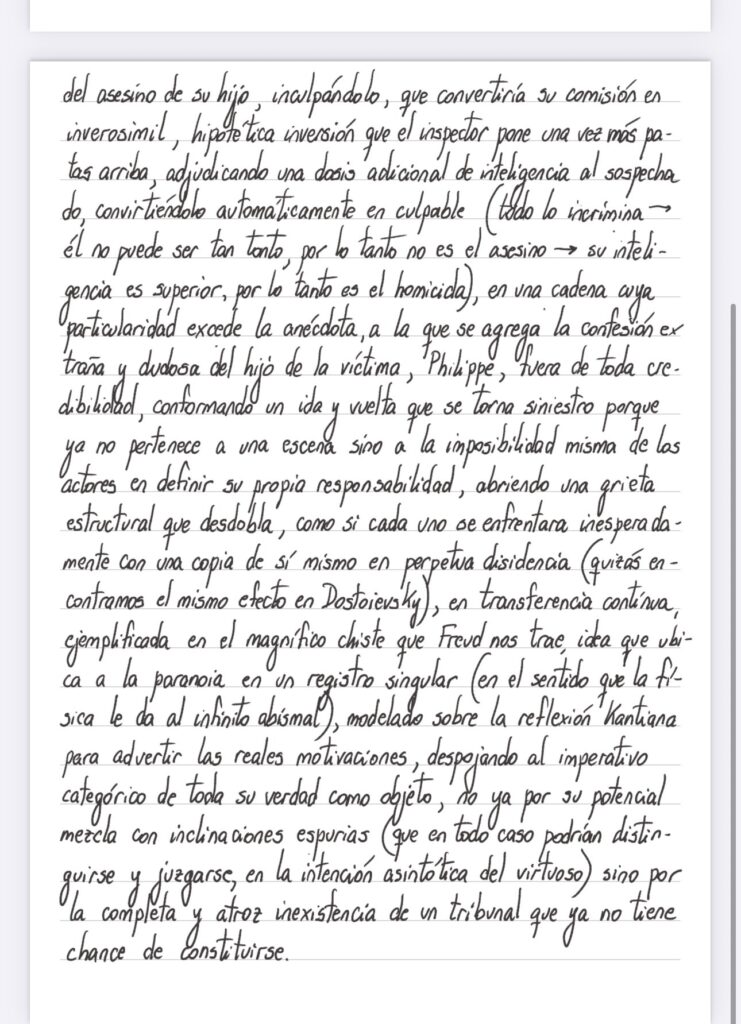 del asesino de su hijo, inculpándolo, que convertiría su comisión en
inverosimil, hipotética inversión que el inspector pone una vez más pa-
tas arriba, adjudicando una dosis adicional de inteligencia al sospecha
do, convirtiéndolo automáticamente en culpable (todo lo incrimina →
él no puede ser tan tonto, por lo tanto no es el asesino → su inteli-
gencia es superior, por lo tanto es el homicida), en una cadena cuya
particularidad excede la anécdota, a la que se agrega la confesión ex
traña y dudosa del hijo de la víctima, Philippe, fuera de toda cre-
dibilidad, conformando un ida y vuelta que se torna siniestro porque
ya no pertenece a una escena sino a la imposibilidad misma de los
actores en definir su propia responsabilidad, abriendo una grieta
estructural que desdobla, como si cada uno se enfrentara inesperada-
mente con una copia de sí mismo en perpetua disidencia (quizás en-
contramos el mismo efecto en Dostoievsky), en transferencia contínua,
ejemplificada en el magnífico chiste que Freud nos trae, idea que ubi-
ca a la paranoia en un registro singular (en el sentido que la fí-
sica le da al infinito abismal), modelado sobre la reflexión Kantiana
para advertir las reales motivaciones, despojando al imperativo
categórico de toda su verdad como objeto, no ya por su potencial
mezcla con inclinaciones espurias (que en todo caso podrían distin-
guirse y juzgarse, en la intención asintótica del virtuoso) sino por
la completa y atroz inexistencia de un tribunal que ya no tiene
chance de constituirse.